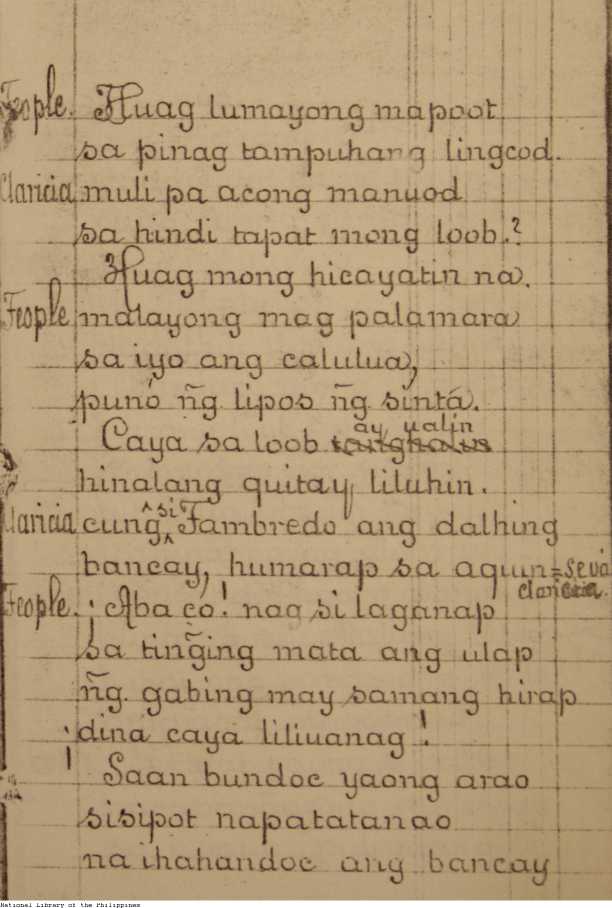 People. Huag lumayong mapoot
sa pinag tampuhang lingcod.
Claricia muli pa acong manuod
sa hindi tapat mong loob.?
Huag mong hicayatin na.
Feople malayong mag palamara
sa iyo ang calulua,
punó ñg lipos ñg sintá.
Caya sa loob ay ualin
hinalang quitay liluhin.
Claricia cung si Fambredo ang dalhing
bancay, humarap sa aquin=se vá
claricia.
Feople. ¡Aba co! nag si laganap
sa tinging mata ang ulap
ñg. gabing may samang hirap
¡dina caya liliuanag!
Saan bundoc yaong arao
sisipot napatatanao
na ihahandoc ang bancay
National Library of the Philippines